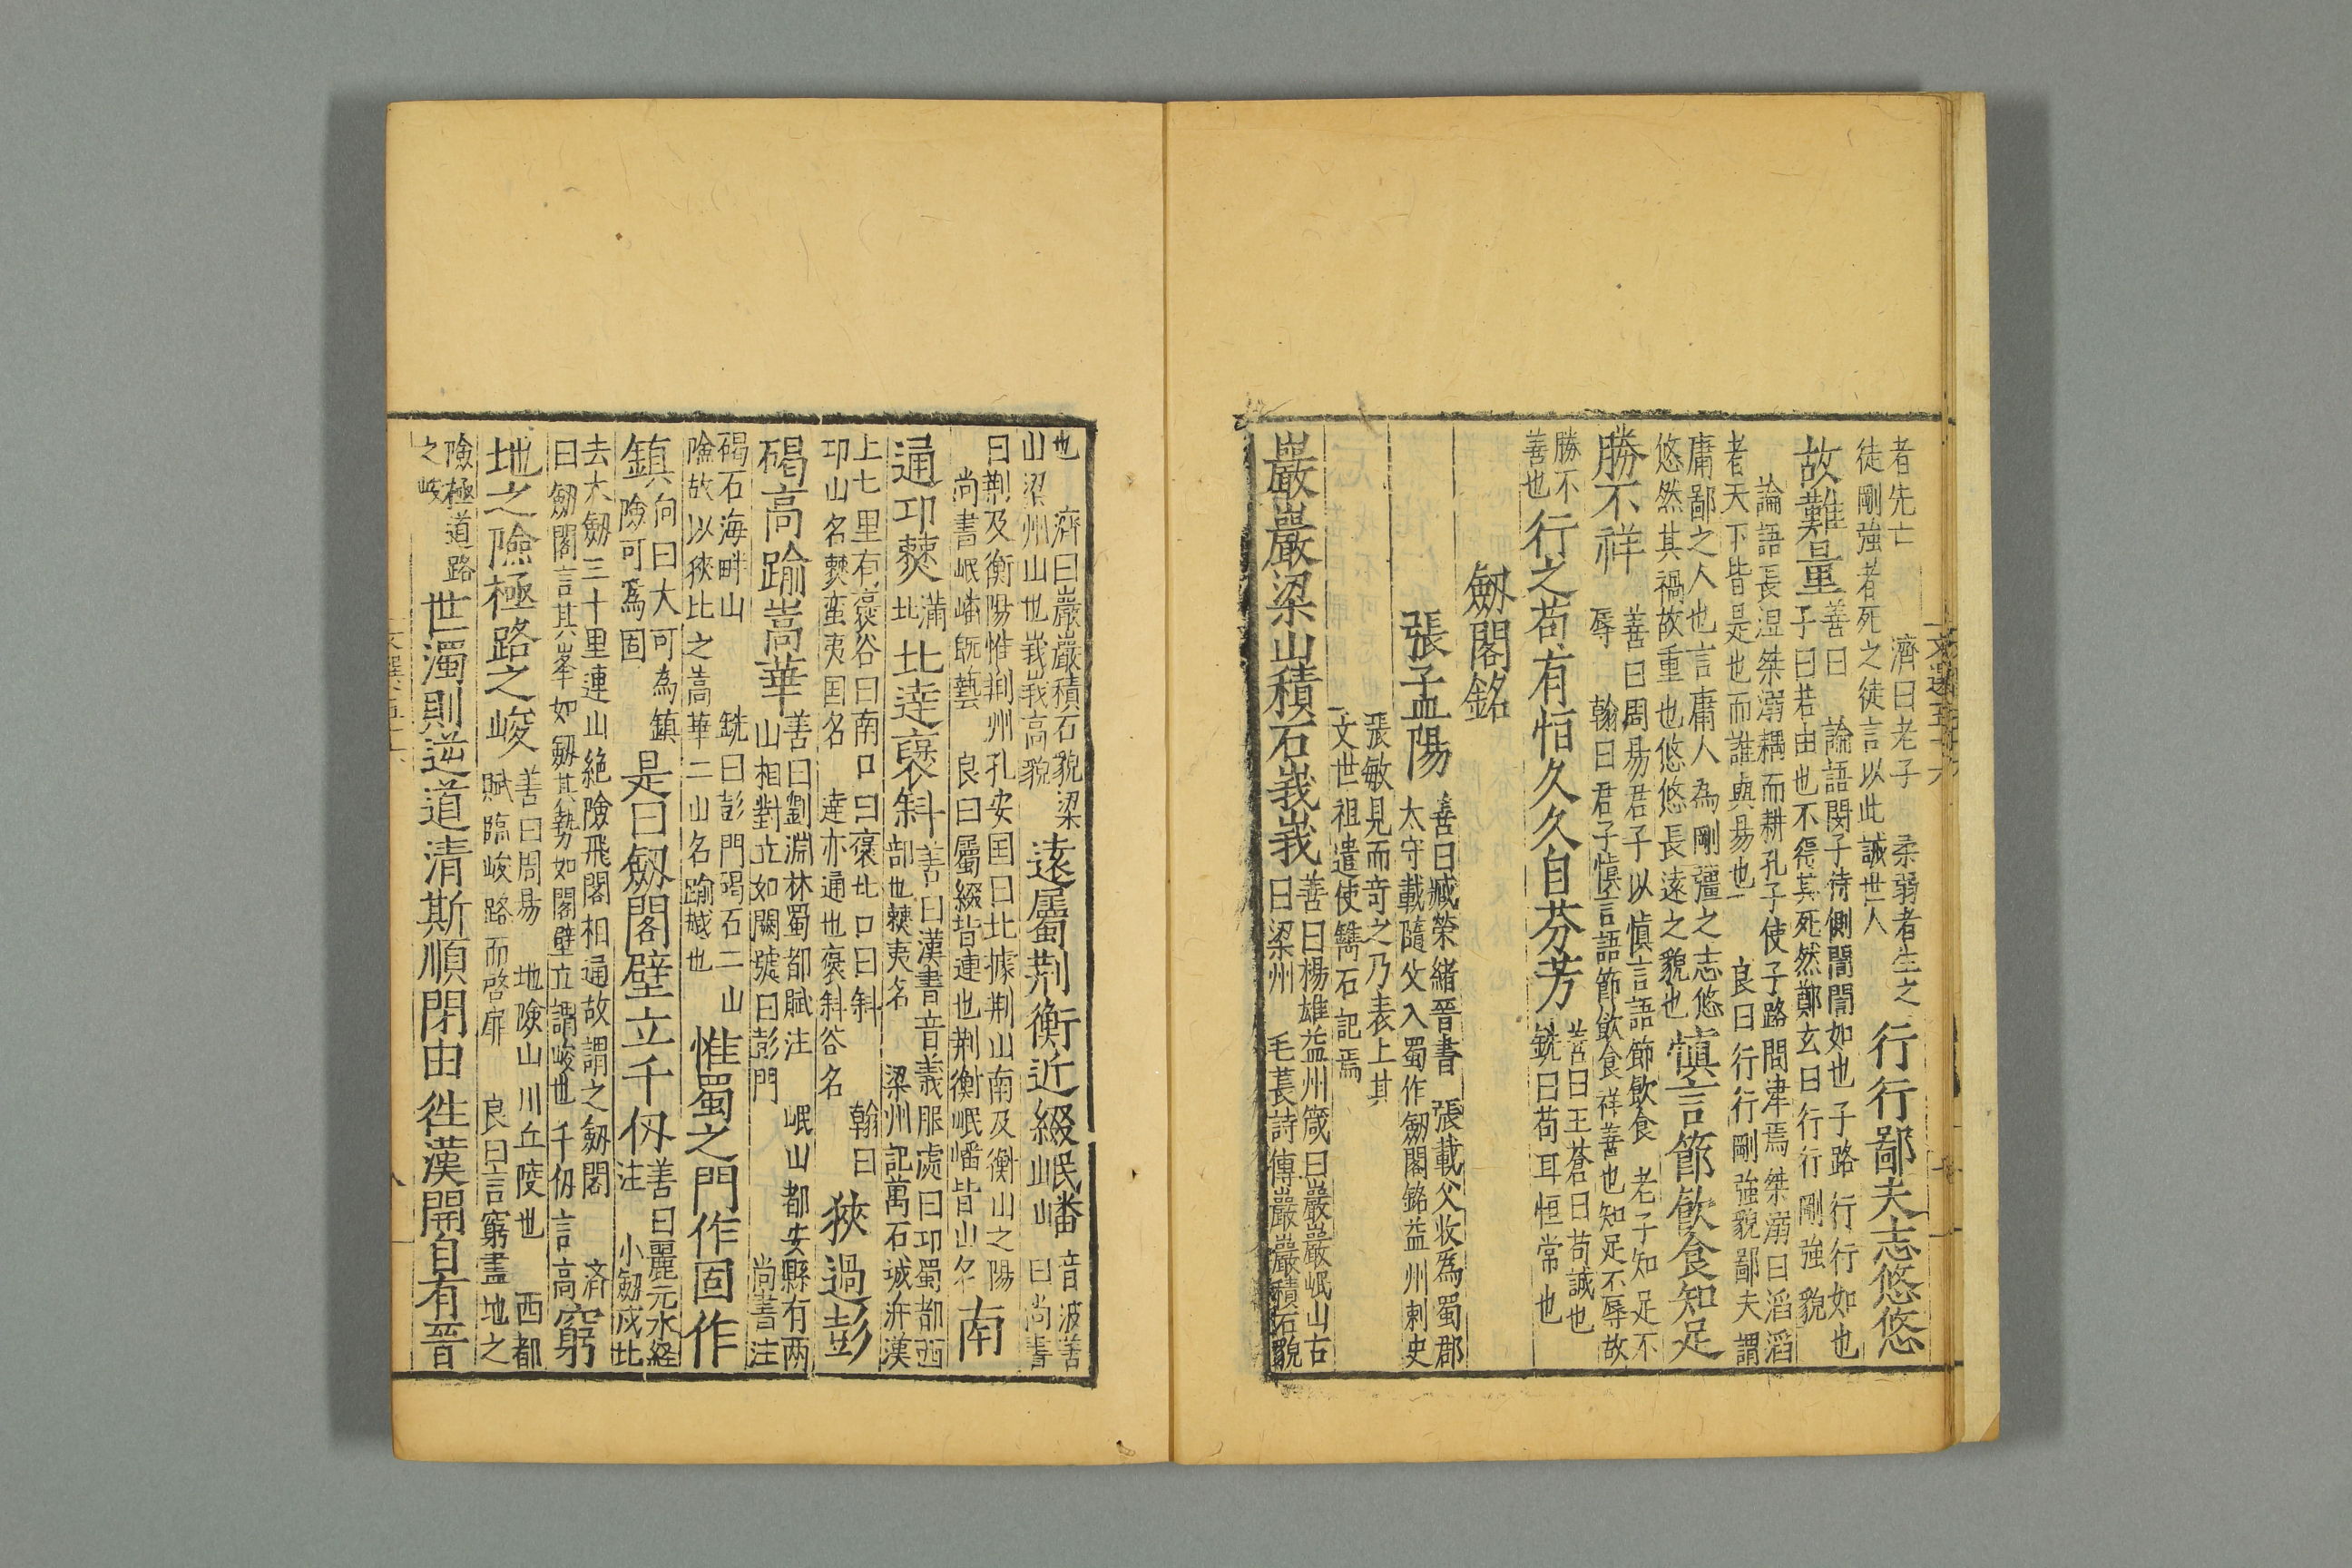 者先亡　濟曰老子　柔弱者生之
徒剛強者死之徒言以此誡世人
行行鄙夫志悠悠
故難量
善曰　論語閔子侍側誾誾如也子路行行如也
子曰若由也不得其死然鄭玄曰行行剛強貌
論語長沮桀溺耦而耕孔子使子路問津焉桀溺曰滔滔
者天下皆是也而誰與易也　良曰行行剛強貌鄙夫謂
庸鄙之人也言庸人為剛彊之志悠
悠然其禍故重也悠悠長遠之貌也
慎言節飲食知足
勝不祥
善曰周易君子以慎言語節飲食　老子知足不
辱　翰曰君子慎言語節飲食祥善也知足不辱故
勝不
善也
行之苟有恒久久自芬芳
善曰王蒼曰苟誠也
銑曰苟耳恒常也
劒閣銘
張孟陽
善曰臧榮緒晉書　張載父收為蜀郡
太守載隨父入蜀作劒閣銘益州刺史
張敏見而竒之乃表上其
文世祖遣使鐫石記焉
巖巖梁山積石峩峩
善曰楊雄益州箴曰巖巖岷山古
曰梁州　毛萇詩傳巖巖積石貌
也　濟曰巖巖積石貌梁
山梁州山也峩峩高貌
遠屬荆衡近綴岷嶓
音波善
曰尚書
曰荆及衡陽惟荆州孔安囯曰北據荆山南及衡山之陽
尚書岷嶓旣藝　良曰屬綴皆連也荆衡岷嶓皆山名
南
通卭僰
蒲
北
北達褒斜
善曰漢書音義服虔曰卭蜀都西
部也僰夷名　梁州記萬石城泝漢
上七里有褒谷曰南口曰褒北口曰斜　翰曰
卭山名僰蛮夷囯名　達亦通也褒斜谷名
狹過彭
碣高踰嵩華
善曰劉淵林蜀都賦注　岷山都安縣有两
山相對立如闕號曰彭門　尚書注
碣石海畔山　銑曰彭門碣石二山
險故以狹比之嵩華二山名踰越也
惟蜀之門作固作
鎮
向曰大可為鎮
險可爲固
是曰劒閣壁立千仞
善曰酈元水経
注　小劒戍北
去大劒三十里連山絶險飛閣相通故謂之劒閣　済
曰劒閣言其峯如劒其勢如閣壁立謂峻也千仞言高
窮
地之險極路之峻
善曰周易　地険山川丘陵也　西都
賦臨峻路而啓扉　良曰言窮盡地之
險極道路
之峻
世濁則逆道清斯順閉由徃漢開自有晉